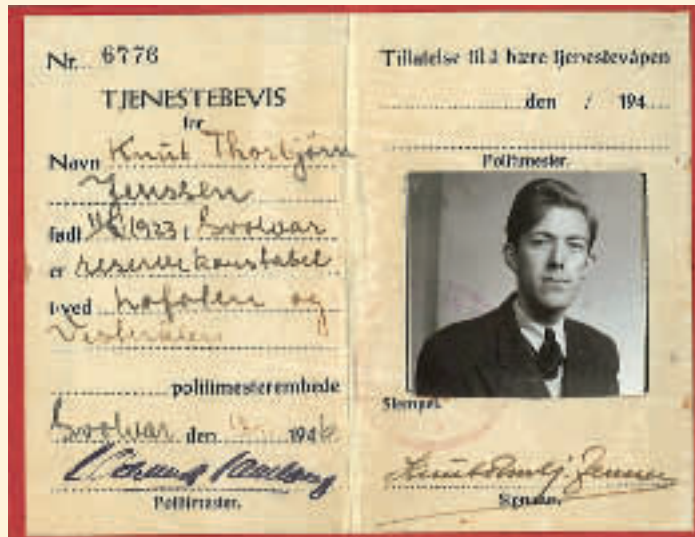 Nr. 6776
TJENESTEBEVIS
for
Navn Knut Thorbjørn
Jenssen
født 1923 i Svolvær
er reservekonstabel
ved Lofoten og
Vesterålen
politimesterembede
Svolvær den 194
Politimester.
Tillatelse til å bære tjenestevåpen
den / 194
Politimester.
Stempel.
Knut Thorbj. Jenssen
Signatur.